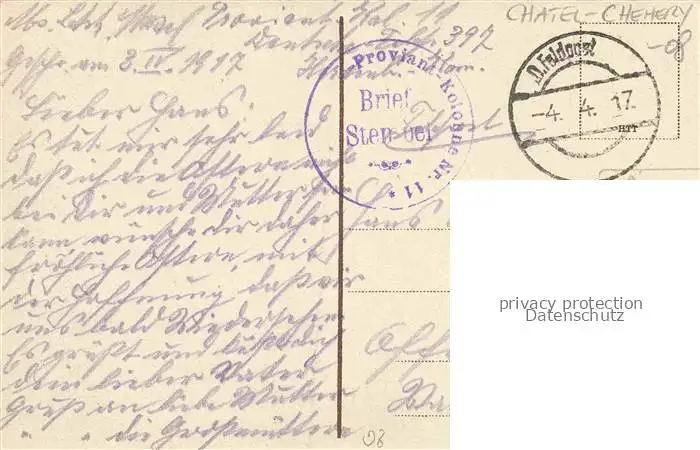 CHATEL-CHEHERY
-08
Abs. Ltd.
Proviant Kol. 11
Deutsche Feldp. 397
Geschr. am 3. IV. 1917
D. Feldpost
-4. 4. 17.
Proviant-Kolonne Nr. 11 *
Brief
Stempel
Lieber Hans!
Es tut mir sehr leid
daß ich die Ostern nicht
bei Dir und Mutter sein
kann wünsche dir daher
fröhliche Ostern, mit
der Hoffnung daß wir
uns bald Wiedersehen
Es grüßt und küßt dich
dein lieber Vater
Gruß an liebe Mutter
" " die Großmütter
Hans
privacy protection
Datenschutz
08